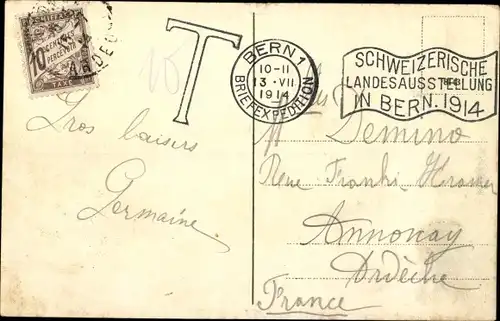 CHIFFRE
10 CENTIMES
A PERCEVOIR
TAXE
T
BERN 1
10-11
13·VII
1914
BRIEFEXPEDITION
SCHWEIZERISCHE
LANDESAUSSTELLUNG
IN BERN. 1914
10
Gros baisers
Germaine.
M Demino
Rue Franki Kramer
Annonay
Ardèche
France